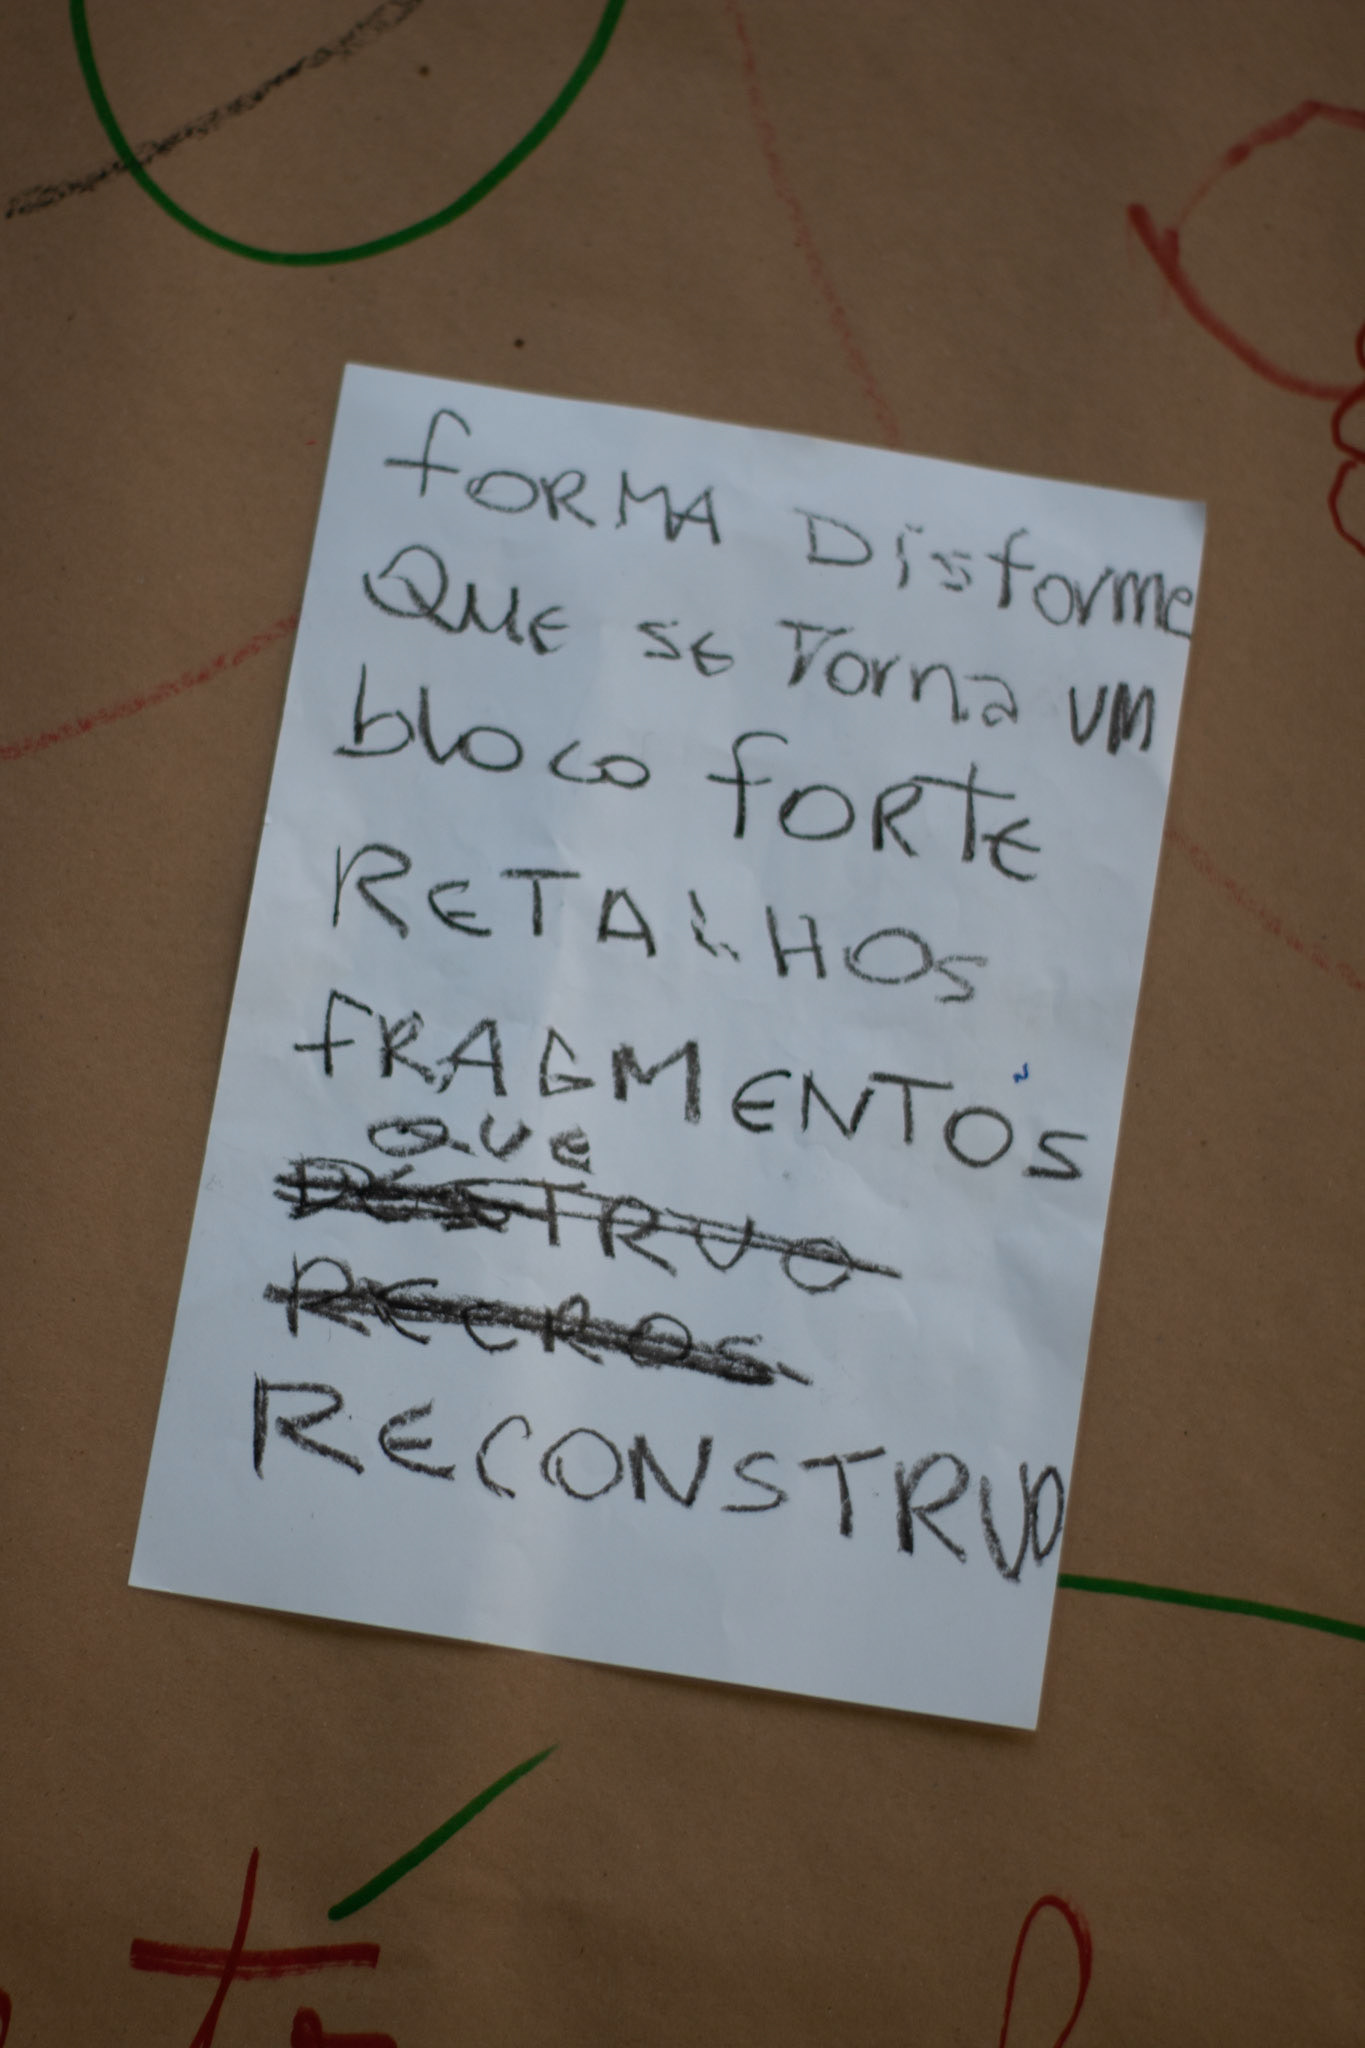 fORMA Disforme
QUE SE Torna UM
bloco fORTE
RETALHOS
fRAGMENTOS
QUE
DESTRUO
RECROS
RECONSTRUO